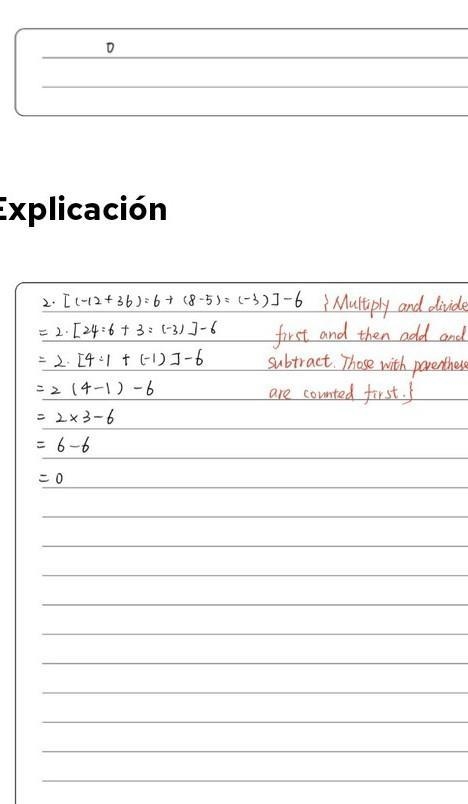 0
Explicación
2·[(-12+36):6+(8-5):(-3)]-6 {Multiply and divide
=2·[24:6+3:(-3)]-6 first and then add and
=2·[4:1+(-1)]-6 subtract. Those with parenthese
=2(4-1)-6 are counted first.}
=2×3-6
=6-6
=0